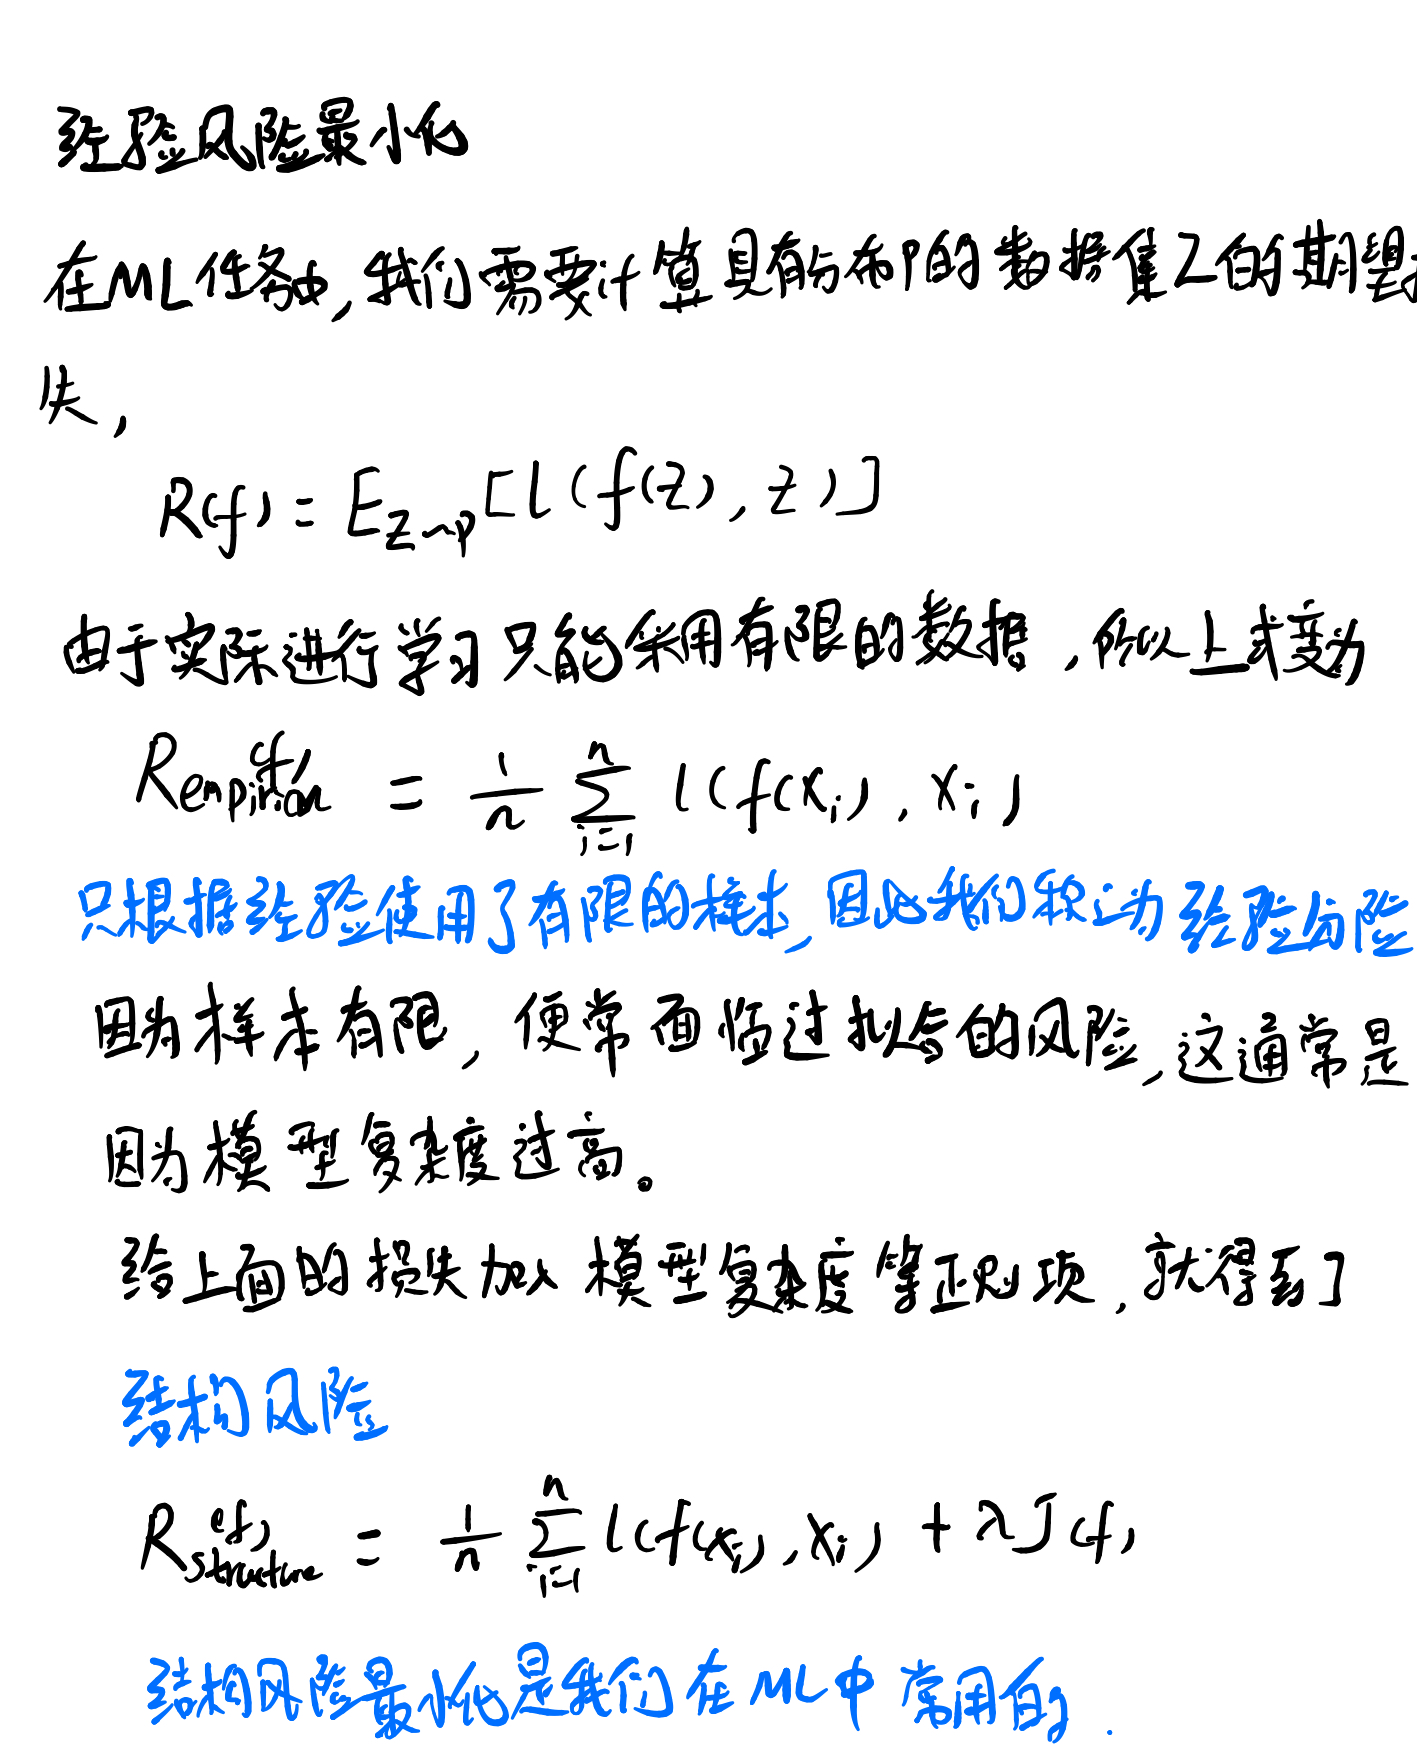 经验风险最小化
在ML任务中,我们需要计算具有分布P的数据集Z的期望损
失,
R(f) = E_{Z~p}[l(f(z), z)]
由于实际进行学习只能采用有限的数据,所以上式变为
R_{empirical}^{(f)} = \frac{1}{n} \sum_{i=1}^{n} l(f(x_i), x_i)
只根据经验使用了有限的样本,因此我们称之为经验风险
因为样本有限,便常面临过拟合的风险,这通常是
因为模型复杂度过高。
给上面的损失加入模型复杂度等正则项,就得到了
结构风险
R_{structure}^{(f)} = \frac{1}{n} \sum_{i=1}^{n} l(f(x_i), x_i) + λJ(f)
结构风险最小化是我们在ML中常用的.